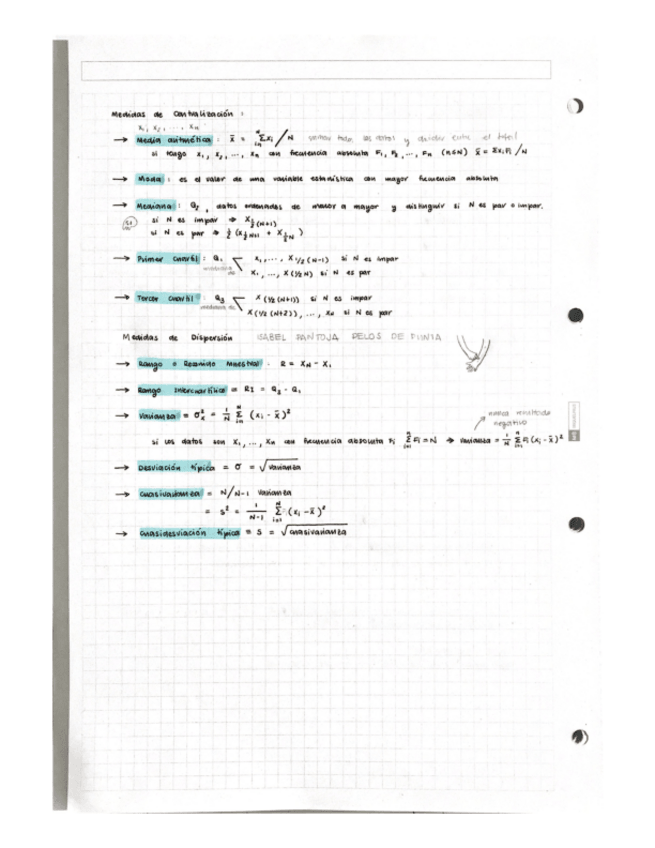 Medidas de Centralización :
x₁, x₂, ..., xₙ
→ Media aritmética : x̄ = Σxᵢ / N sumar todos los datos y dividir entre el total
si tengo x₁, x₂, ..., xₙ con frecuencia absoluta F₁, F₂, ..., Fₙ (n≤N) x̄ = ΣxᵢFᵢ / N
→ Moda : es el valor de una variable estadística con mayor frecuencia absoluta
→ Mediana : Q₂, datos ordenados de menor a mayor y distinguir si N es par o impar.
si N es impar ⇒ X ½(N+1)
si N es par ⇒ ½ (X ½N+1 + X ½N)
→ Primer cuartil : Q₁ < x₁, ..., X ½(N-1) si N es impar
mediana de x₁, ..., X(½N) si N es par
→ Tercer cuartil : Q₃ < X(½(N+1)) si N es impar
mediana de X(½(N+2)), ..., xN si N es par
Medidas de Dispersión ISABEL PANTOJA PELOS DE PUNTA
→ Rango o Recorrido Muestral . R = XN - X₁
→ Rango Intercuartílico = RI = Q₃ - Q₁
→ Varianza = σ²ₓ = 1/N Σ (xᵢ - x̄)²
nunca resultado
negativo
si los datos son x₁, ..., xₙ con frecuencia absoluta Fᵢ Σ Fᵢ = N → varianza = 1/N Σ Fᵢ(xᵢ - x̄)²
→ Desviación típica = σ = √varianza
→ Cuasivarianza = N/N-1 varianza
= S² = 1/N-1 Σ (xᵢ - x̄)²
→ Cuasidesviación típica = S = √cuasivarianza